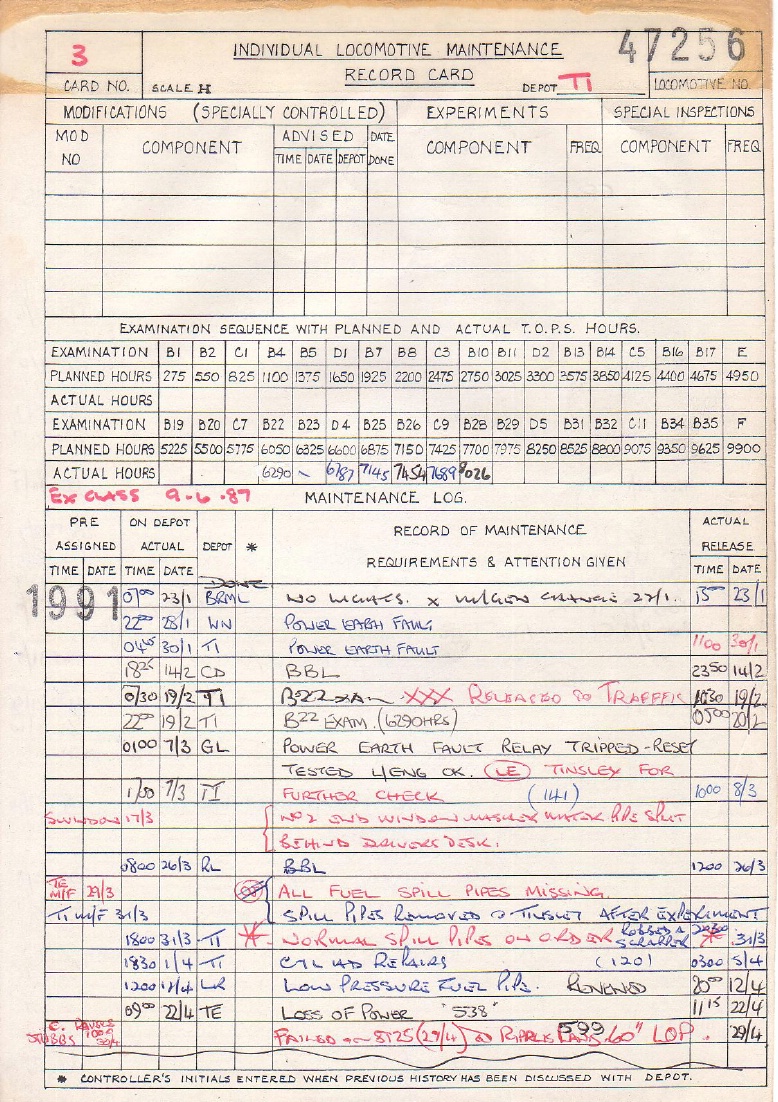 3 INDIVIDUAL LOCOMOTIVE MAINTENANCE 47256
RECORD CARD
CARD NO. SCALE H DEPOT TI LOCOMOTIVE NO.
MODIFICATIONS (SPECIALLY CONTROLLED) EXPERIMENTS SPECIAL INSPECTIONS
MOD NO COMPONENT ADVISED DATE DONE COMPONENT FREQ COMPONENT FREQ
TIME DATE DEPOT
EXAMINATION SEQUENCE WITH PLANNED AND ACTUAL T.O.P.S. HOURS.
EXAMINATION B1 B2 C1 B4 B5 D1 B7 B8 C3 B10 B11 D2 B13 B14 C5 B16 B17 E
PLANNED HOURS 275 550 825 1100 1375 1650 1925 2200 2475 2750 3025 3300 3575 3850 4125 4400 4675 4950
ACTUAL HOURS
EXAMINATION B19 B20 C7 B22 B23 D4 B25 B26 C9 B28 B29 D5 B31 B32 C11 B34 B35 F
PLANNED HOURS 5225 5500 5775 6050 6325 6600 6875 7150 7425 7700 7975 8250 8525 8800 9075 9350 9625 9900
ACTUAL HOURS 6290 ~ 6787 7145 7454 7689 8026
EX CLASS 9-6-87 MAINTENANCE LOG.
PRE ASSIGNED ON DEPOT ACTUAL DEPOT * RECORD OF MAINTENANCE ACTUAL RELEASE
REQUIREMENTS & ATTENTION GIVEN
TIME DATE TIME DATE TIME DATE
DONE
1991 0700 23/1 BRML NO LIGHTS. X CHANGE 22/1. 1500 23/1
2200 28/1 WN POWER EARTH FAULT
0445 30/1 TI POWER EARTH FAULT 1100 30/1
1825 14/2 CD BBL 2350 14/2
0730 19/2 TI B22 EXAM XXX RELEASED TO TRAFFFIC 1030 19/2
2200 19/2 TI B22 EXAM. (6290HRS) 0500 20/2
0100 7/3 GL POWER EARTH FAULT RELAY TRIPPED-RESET
TESTED L/ENG OK. LE TINSLEY FOR
1700 7/3 TI FURTHER CHECK (141) 1000 8/3
SWINDON 17/3 NO 2 END WINDOW WASHER WATER PIPE SPLIT
BEHIND DRIVERS DESK.
0800 26/3 RL BBL 1200 26/3
TE M/F 29/3 ALL FUEL SPILL PIPES MISSING.
TI M/F 31/3 SPILL PIPES REMOVED @ TINSLEY AFTER EXPERIMENT
1800 31/3 TI * NORMAL SPILL PIPES ON ORDER ROBBED A SCRAPPER * 31/3
1830 1/4 TI REPAIRS (120) 0300 5/4
1200 LR LOW PRESSURE FUEL PIPE. RENEWED 2000 12/4
0900 22/4 TE LOSS OF POWER "538" 1115 22/4
STUBBS FAILED 8T25 (29/4) @ 599 LOP. 29/4
* CONTROLLER'S INITIALS ENTERED WHEN PREVIOUS HISTORY HAS BEEN DISCUSSED WITH DEPOT.